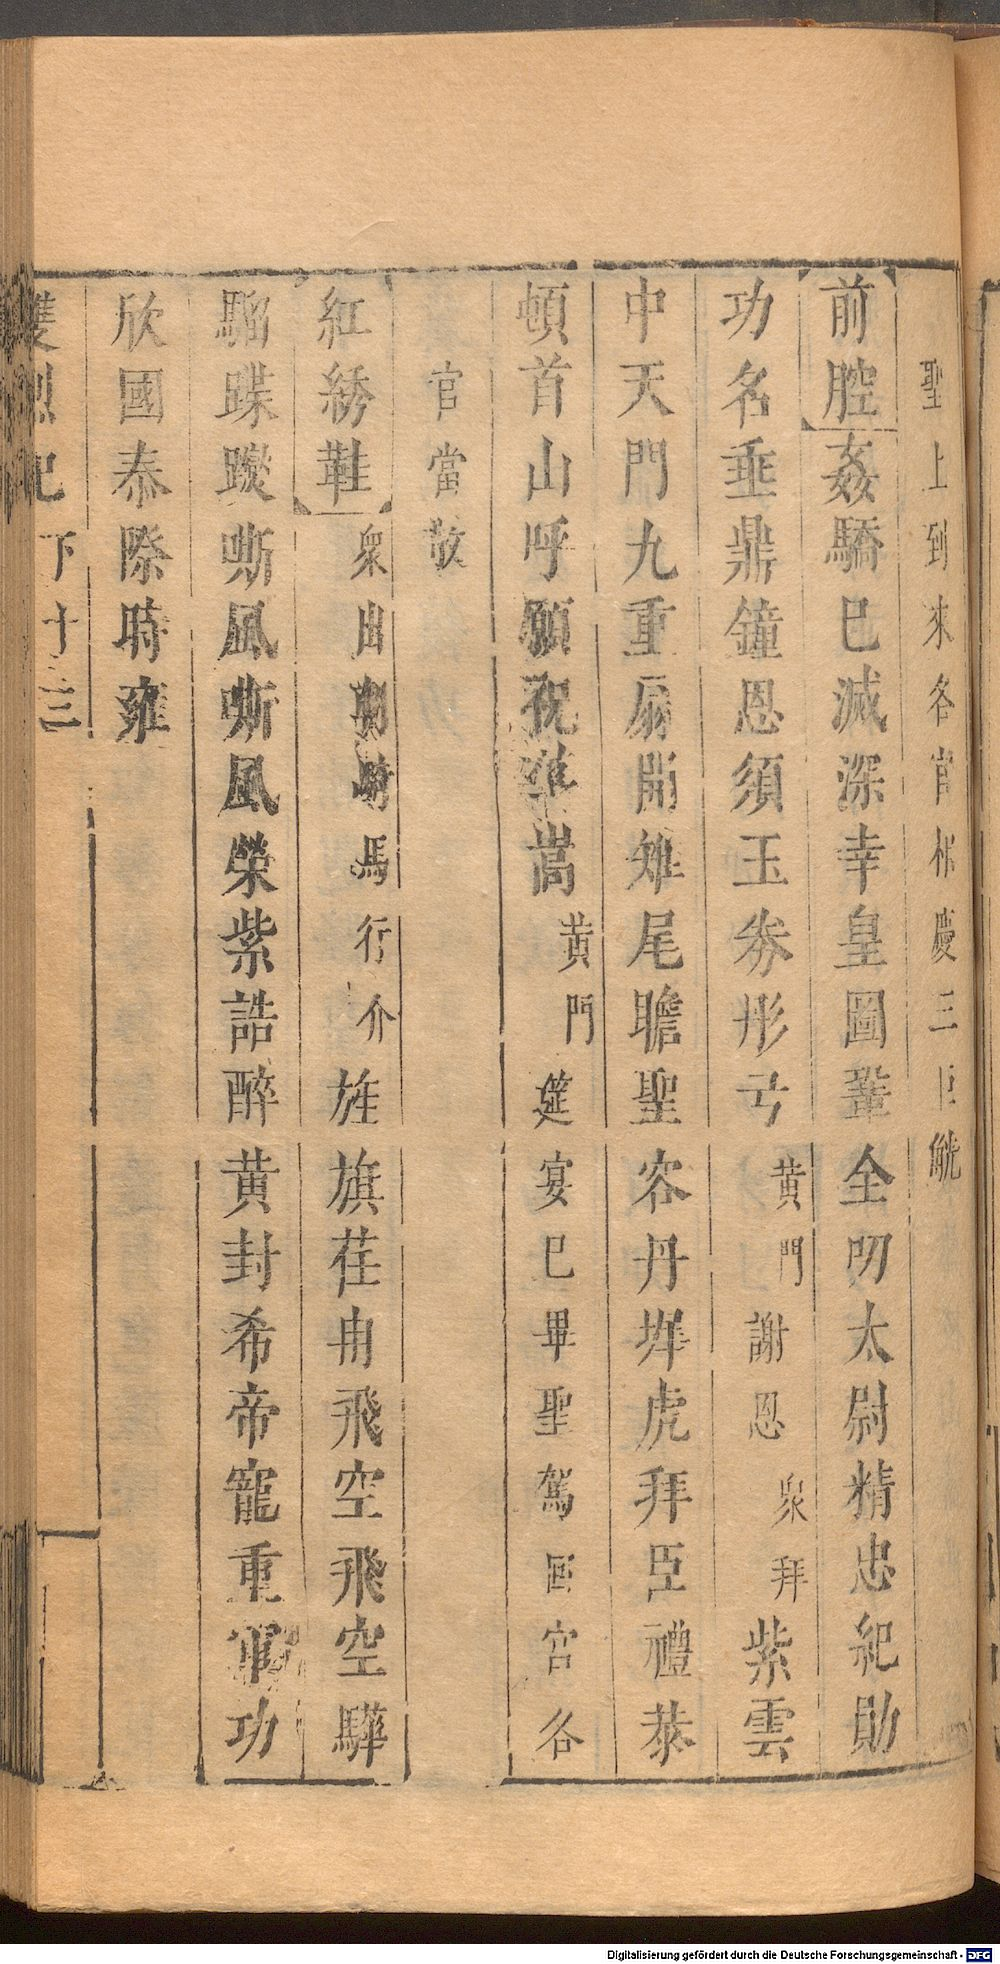 聖上到來各官相慶三臣觥
前腔姦驕巳滅深幸皇圖鞏全仞太尉精忠紀勛
功名垂鼎鐘恩須玉券彤弓黄門謝恩衆拜紫雲
中天門九重扇開雉尾瞻聖容丹墀虎拜臣禮恭
頓首山呼願祝華嵩黄門筵宴巳畢聖駕囘宮各
官當散
紅綉鞋衆出朝騎馬行介旌旗荏冉飛空飛空驊
騮蹀躞嘶風嘶風榮紫誥醉黄封希帝寵重軍功
欣國泰際時雍
雙烈記 下 十三
Digitalisierung gefördert durch die Deutsche Forschungsgemeinschaft - DFG